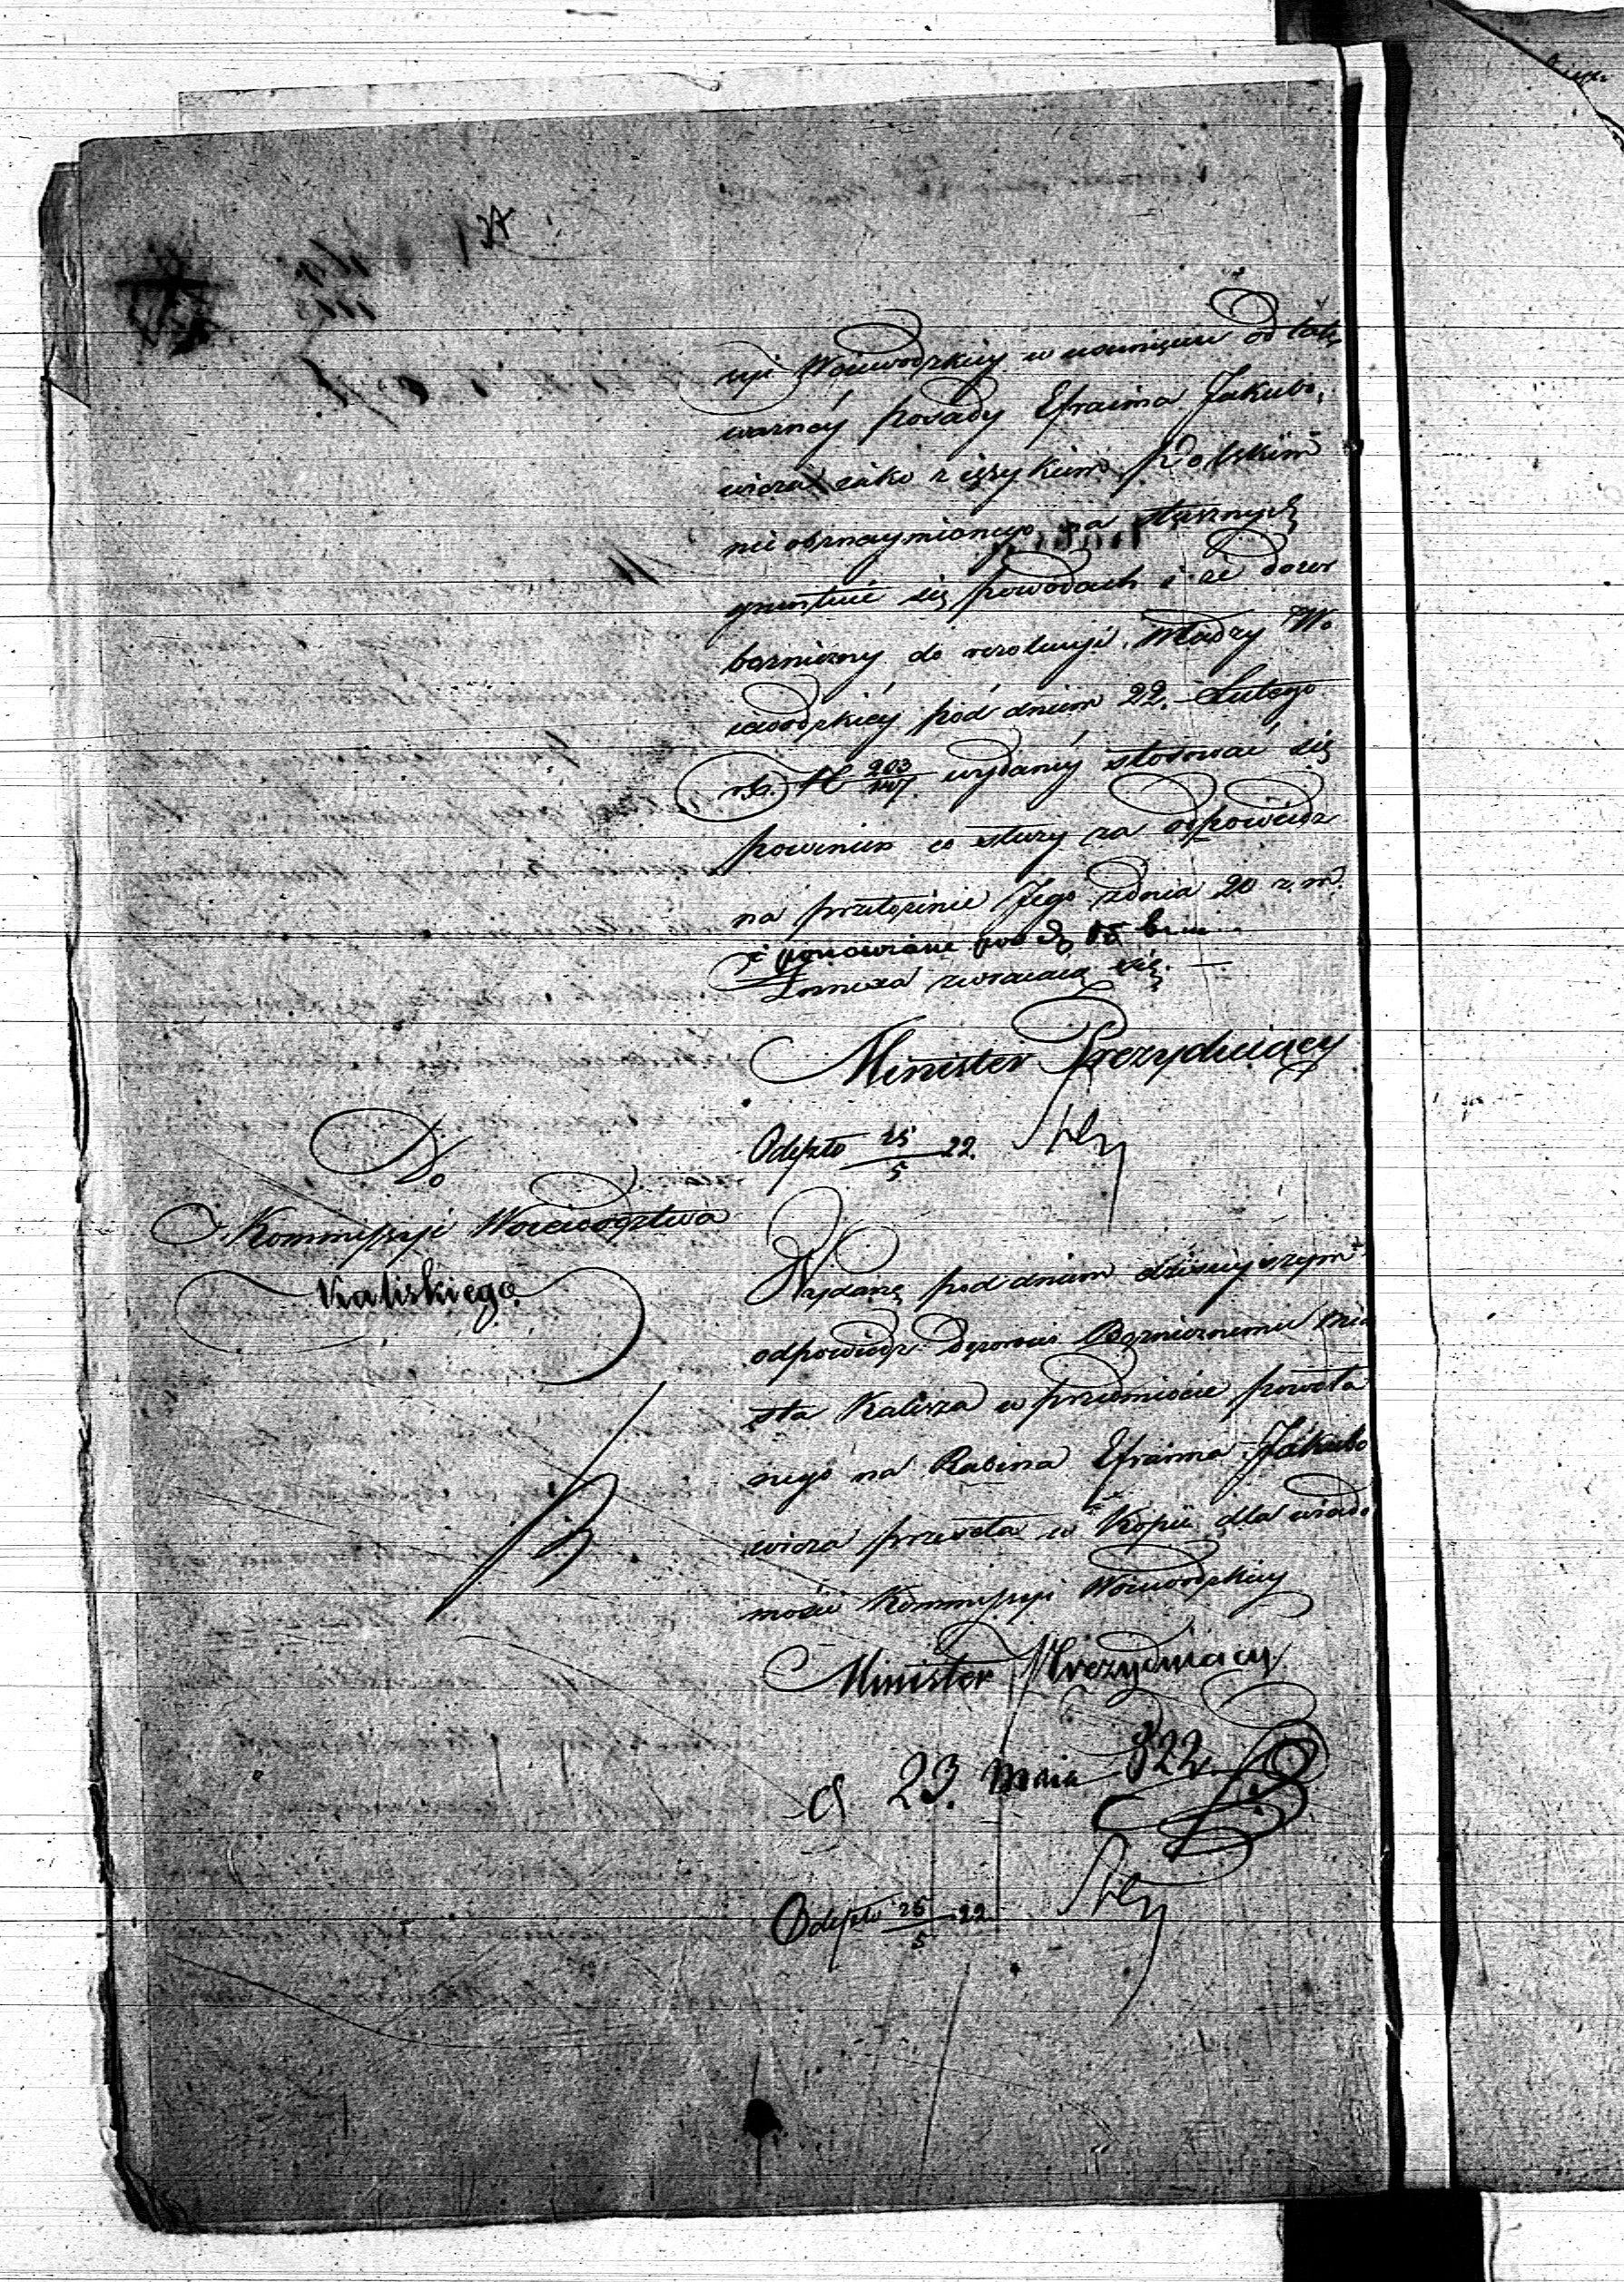 syi Woiewodzkiey w usunięciu od tak
ważnéy posady Efraima Jakubo,
wicza iako z ięzykiem Polskim
nieobznaymionego na słusznych
gruntuie się powodach i że dozor
bożniczny do rezolucyi Władzy Wo
iewodzkiéy pod dniem 22. Lutego
r.b. N 203/147. wydanéy stosować się
powinien co służy za odpowiedź
na przełożenie Jego z dnia 20 z. m.
i ponowione pod d.
zwracaią się. —
Minister Prezyduiący
Odeszło 25/5 22.
Do
Kommissyi Woiewodztwa
Kaliskiego
Wydaną pod dniem dzisieyszym
odpowiedź Dozorowi Bożnicznemu mia
sta Kalisza w przedmiocie powoła
nego na Rabina Efraima Jakubo
wicza przesyła w kopii dla wiado
mości Kommissyi Woiewodzkiey
Minister Prezyduiący
d 23. Maia 822
Odeszło 25/5 22.